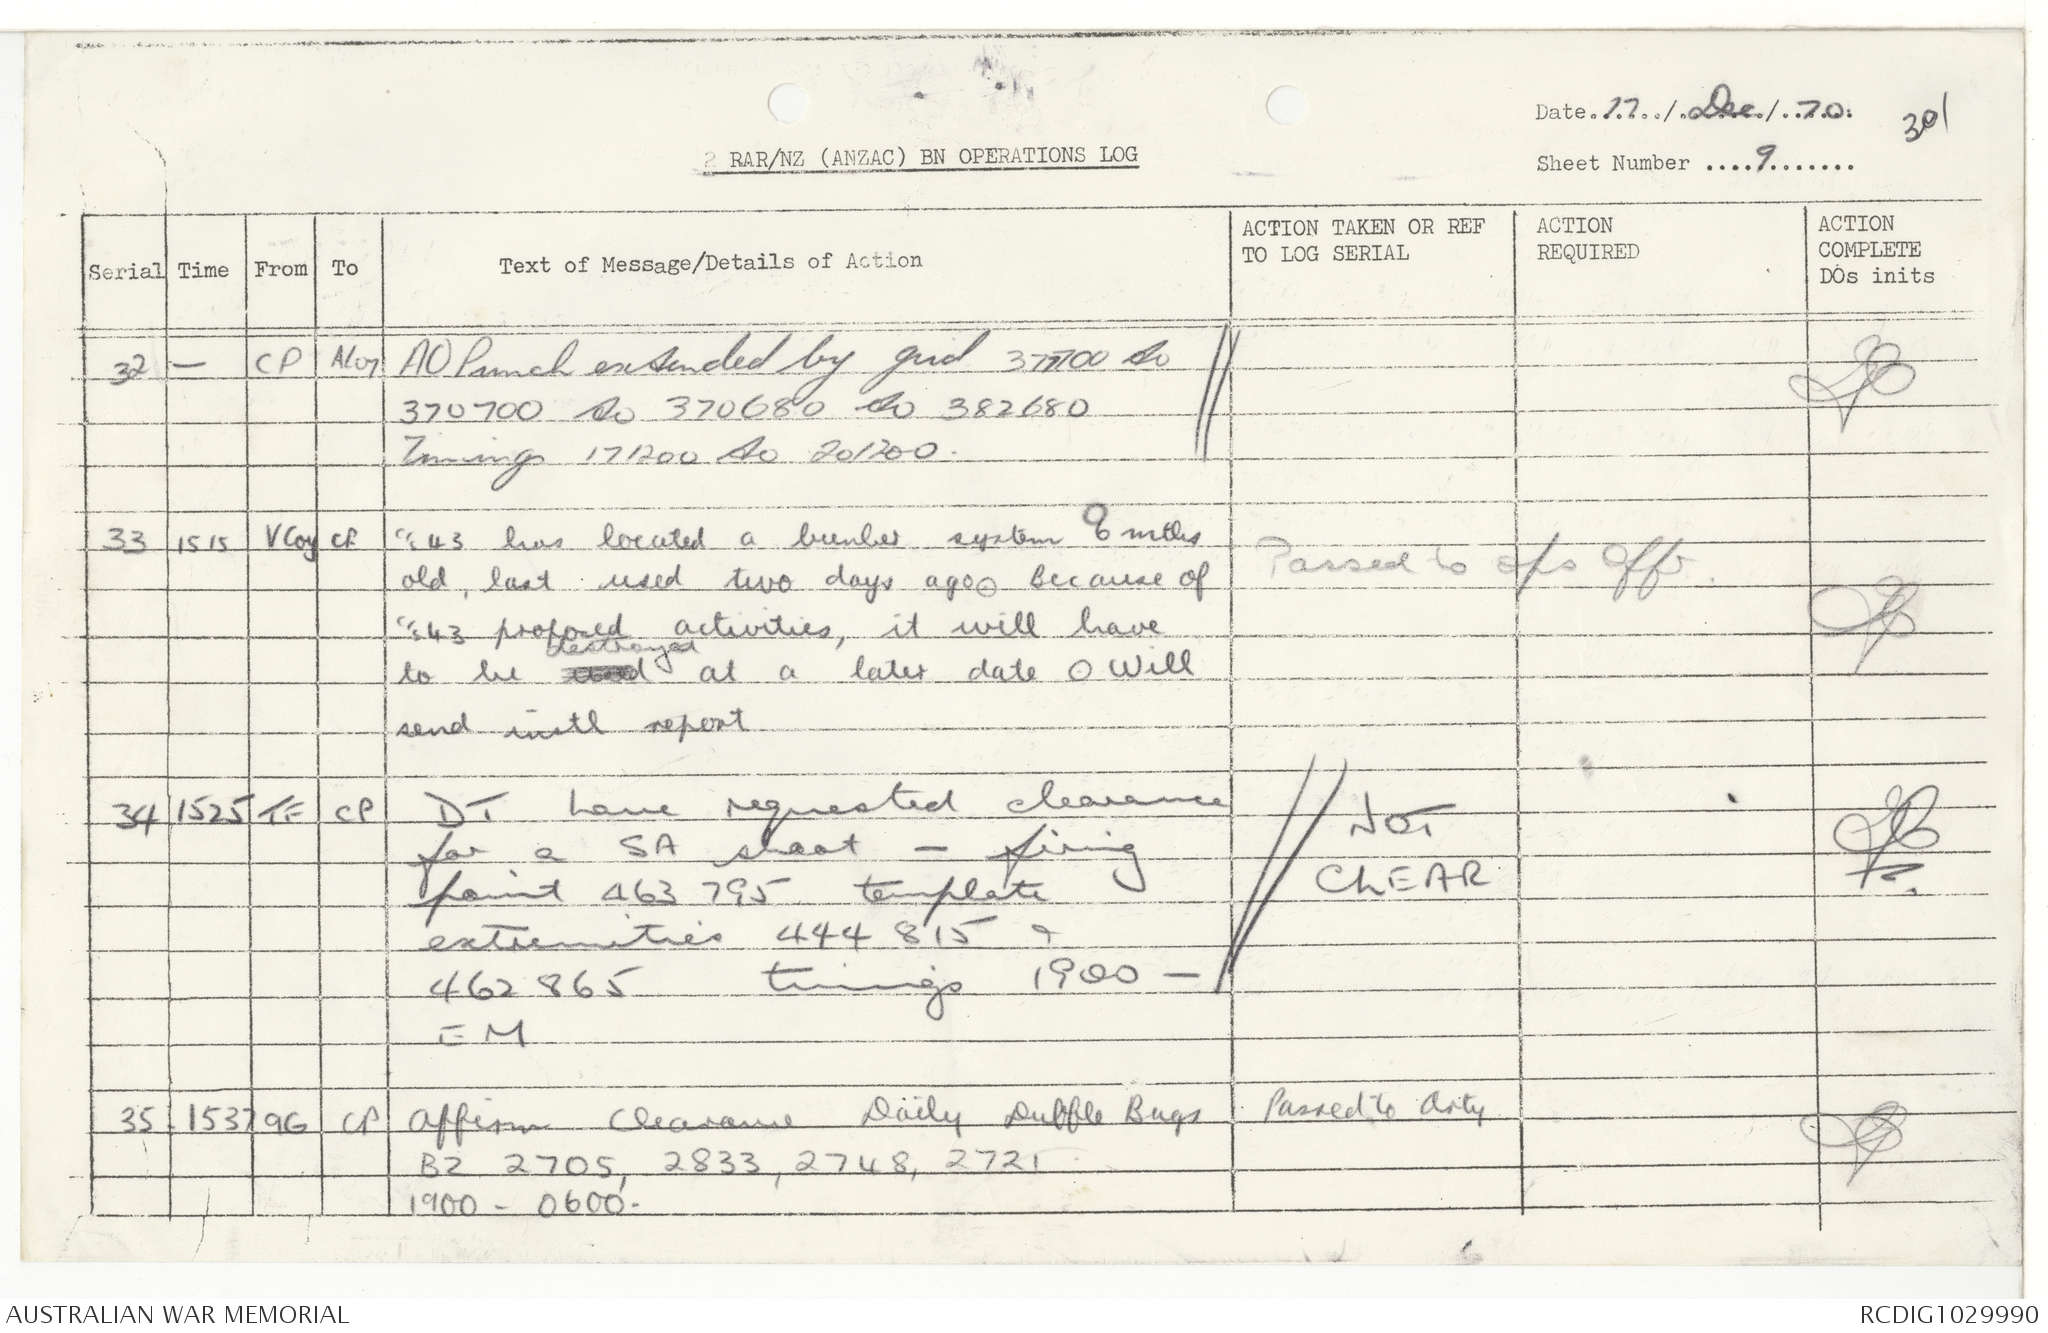 Date. 17../.Dec./..70.
301
2 RAR/NZ (ANZAC) BN OPERATIONS LOG
Sheet Number ....9.......
Serial Time From To Text of Message/Details of Action ACTION TAKEN OR REF TO LOG SERIAL ACTION REQUIRED ACTION COMPLETE DOs inits
32 — CP ACoy AO Punch extended by grid to
370700 to 370680 to 382680
Timings 171200 to 201200.
33 1515 VCoy CP 43 has located a bunker system mths
old, last used two days ago. Because of
43 proposed activities, it will have
to be destroyed at a later date. Will
send instl report
Passed to ops Offr.
34 1525 TF CP DT have requested clearance
for a SA shoot — firing
point 463795 template
extremities 444815 &
462865 timings 1900 —
EM
NOT
CLEAR
35 1537 9G CP Affirm Clearance Daily Duffle Bags
BZ 2705, 2833, 2748, 2721
1900 - 0600.
Passed to Arty
AUSTRALIAN WAR MEMORIAL
RCDIG1029990